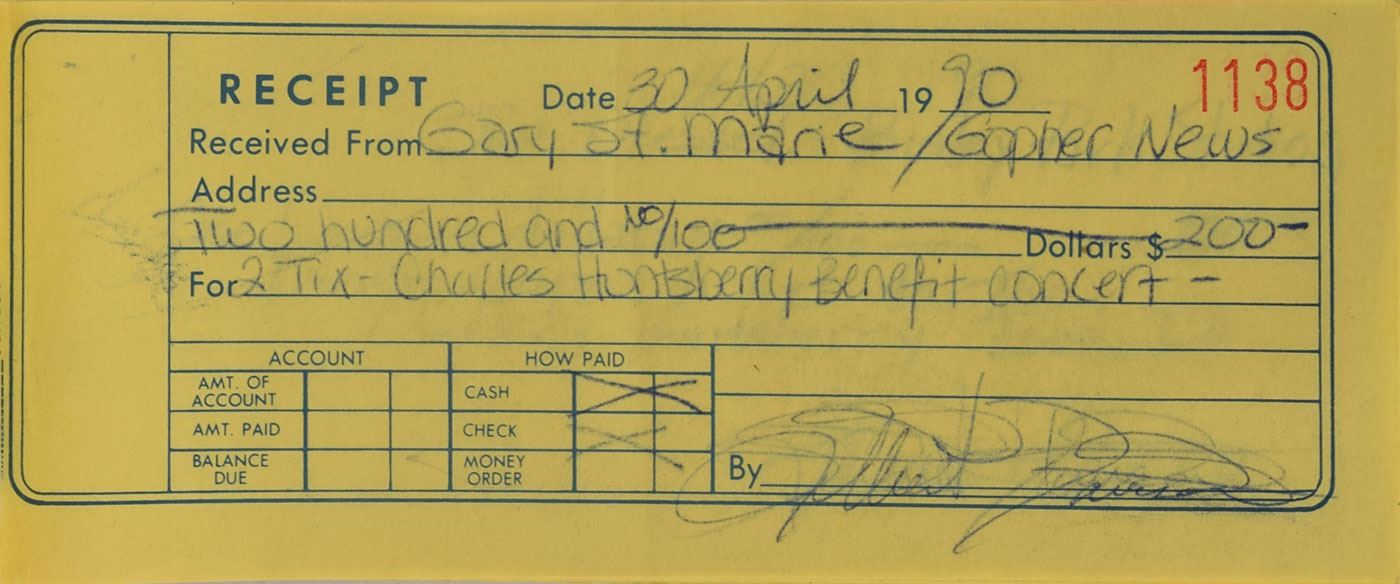 RECEIPT Date 30 April 19 90 1138
Received From Gary St. Marie / Gopher News
Address
Two hundred and NO/100 Dollars $ 200-
For 2 Tix - Charles Huntsberry Benefit concert -
ACCOUNT HOW PAID
AMT. OF ACCOUNT CASH
AMT. PAID CHECK
BALANCE DUE MONEY ORDER
By